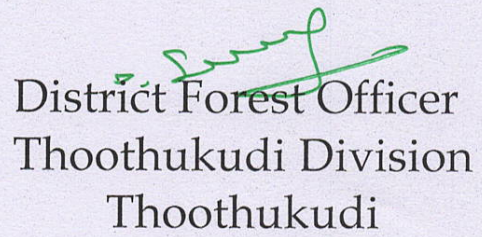 District Forest Officer
Thoothukudi Division
Thoothukudi